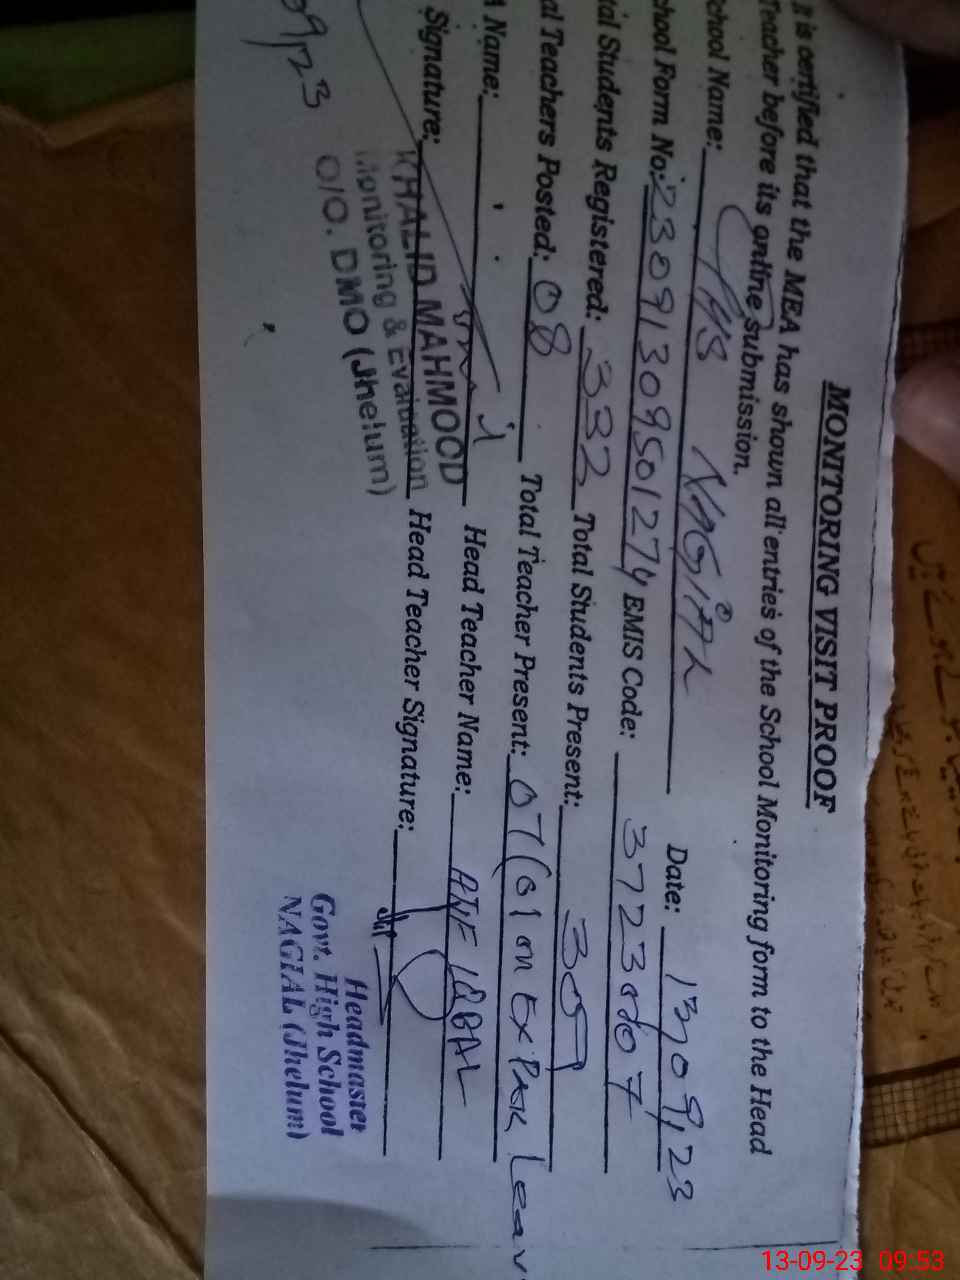 MONITORING VISIT PROOF
It is certified that the MEA has shown all entries of the School Monitoring form to the Head
Teacher before its online submission.
chool Name: GHS NAGIAL Date: 13,09,23
chool Form No: 23091309501274 EMIS Code: 37230007
tal Students Registered: 332 Total Students Present: 309
al Teachers Posted: 08 Total Teacher Present: 07 (01 on Ex Pak Leav
A Name: Head Teacher Name: IQBAL
Signature: Head Teacher Signature:
KHALID MAHMOOD
Monitoring & Evaluation
O/O. DMO (Jhelum)
09/23
Headmaster
Govt. High School
NAGIAL (Jhelum)
13-09-23 09:53